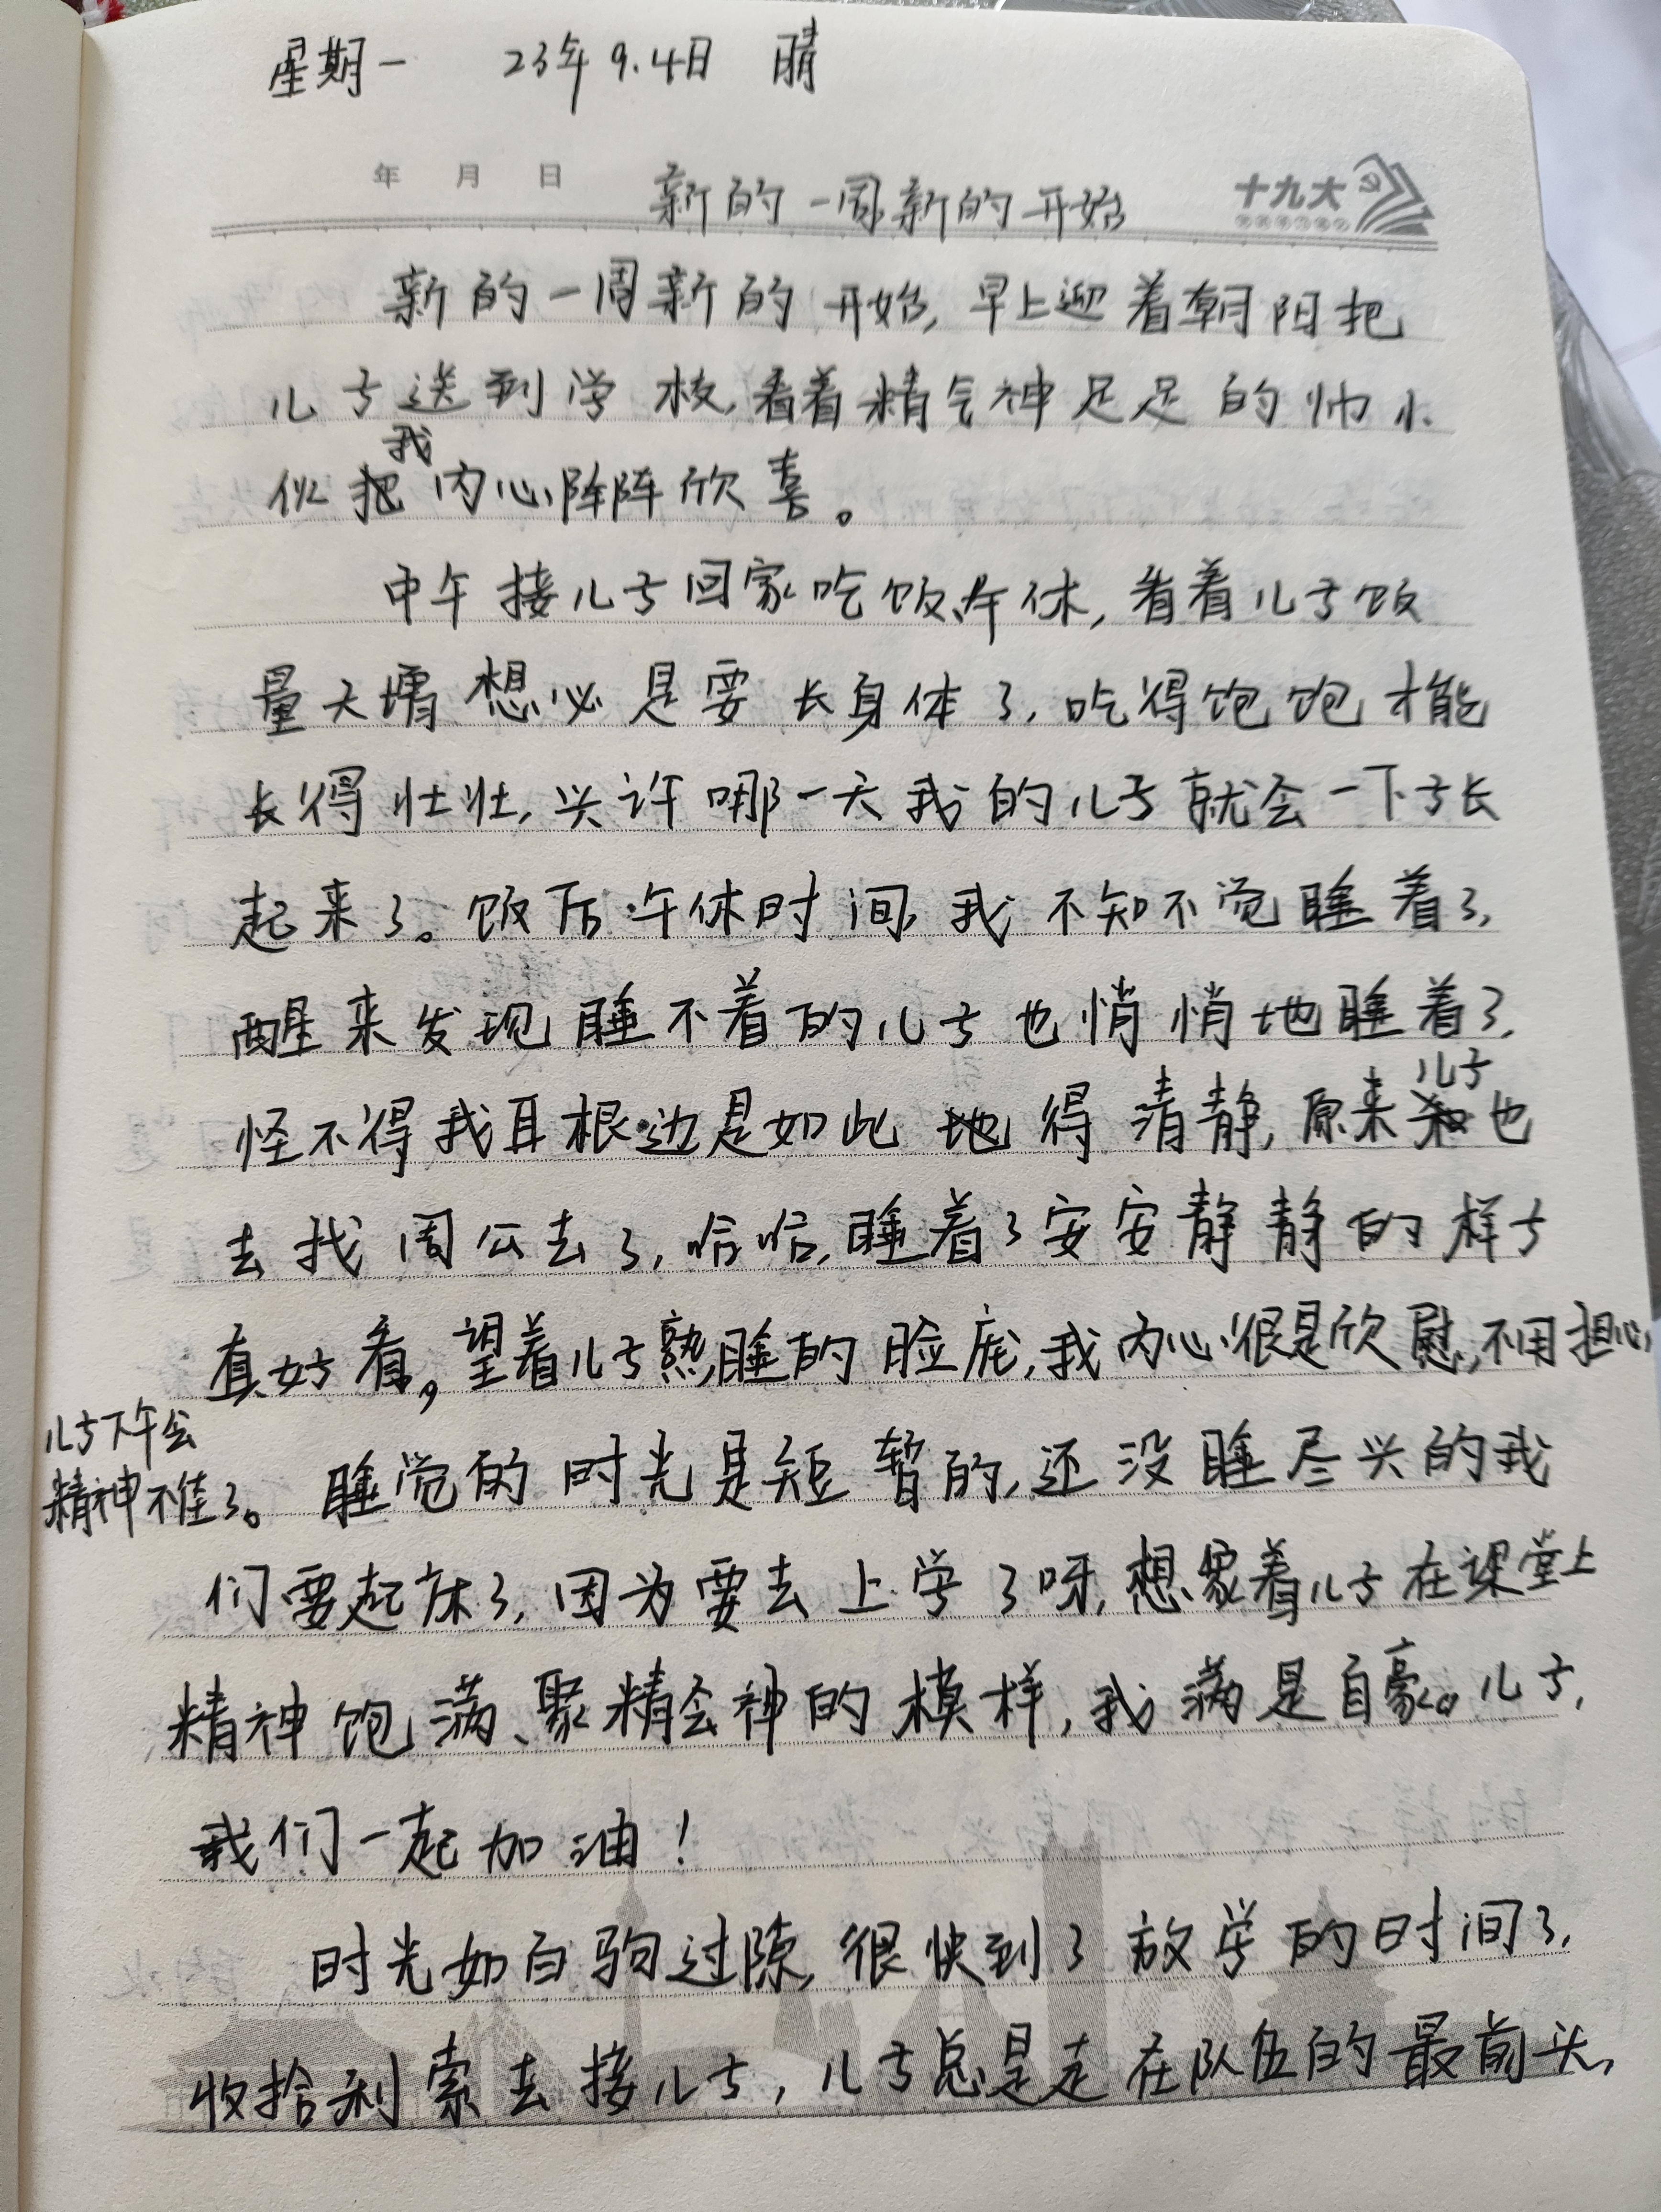 星期一 23年9.4日 晴
年 月 日 新的一周新的开始 十九大
新的一周新的开始，早上迎着朝阳把
儿子送到学校，看着精气神足足的帅小
伙我内心阵阵欣喜。
中午接儿子回家吃饭、午休，看着儿子饭
量大增想必是要长身体了，吃得饱饱才能
长得壮壮，兴许哪一天我的儿子就会一下子长
起来了。饭后午休时间，我不知不觉睡着了，
醒来发现睡不着的儿子也悄悄地睡着了，
怪不得我耳根边是如此地得清静，原来儿子也
去找周公去了，哈哈，睡着了安安静静的样子
真好看，望着儿子熟睡的脸庞，我内心很是欣慰，不用担心
儿子下午会
精神不佳了。睡觉的时光是短暂的，还没睡尽兴的我
们要起床了，因为要去上学了呀，想象着儿子在课堂上
精神饱满、聚精会神的模样，我满是自豪。儿子，
我们一起加油！
时光如白驹过隙，很快到了放学的时间了，
收拾利索去接儿子，儿子总是走在队伍的最前头，